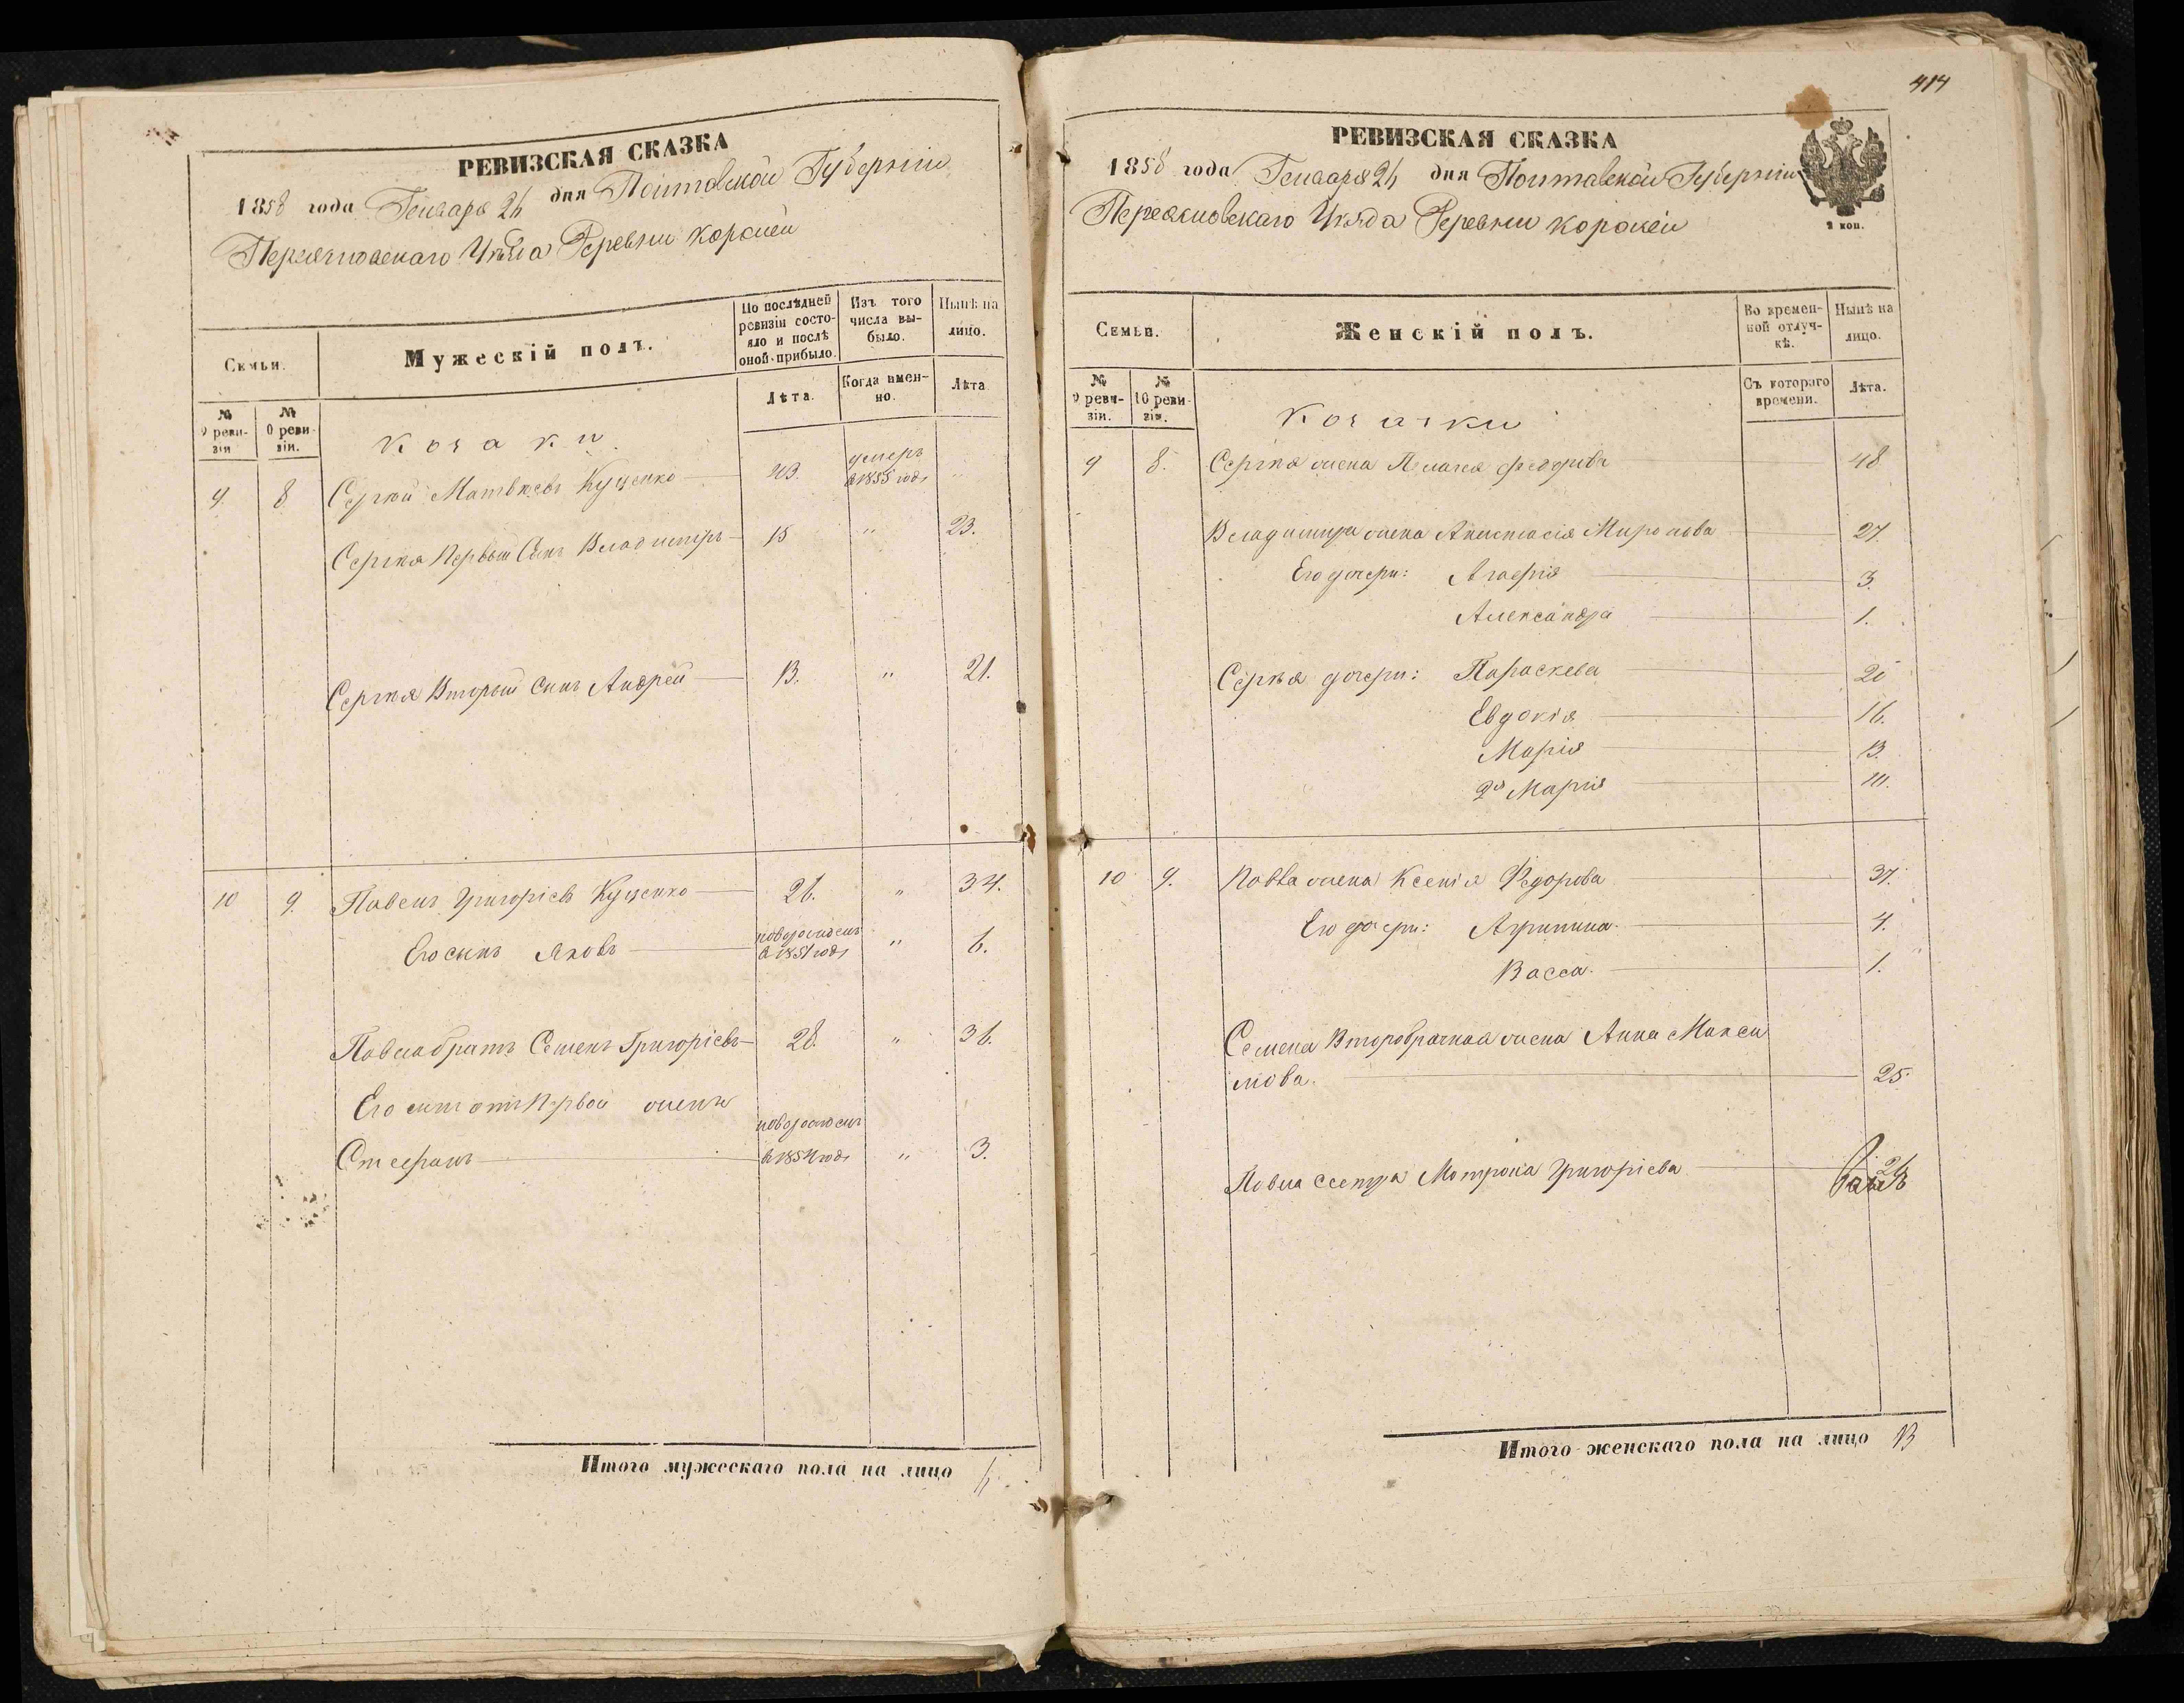 414
РЕВИЗСКАЯ СКАЗКА
1858 года Генваря 26 дня Полтавской Губернии
Переяславскаго Уезда Деревни Короней
Семьи.
Мужескій полъ.
По послѣдней ревизіи состояло и послѣ оной прибыло.
Изъ того числа выбыло.
Нынѣ на лицо.
№ 9 ревизіи
№ 10 ревизіи.
Лѣта.
Когда именно.
Лѣта
Козаки
9 8 Сергѣй Матвѣевъ Куценко 43. умеръ
в 1855 годѣ
Сергѣя Первый Сынъ Владимиръ 15 " 23.
Сергѣя Вторый Сынъ Андрей 13. " 21.
10 9. Павелъ Григоріевъ Куценко 26. " 34.
Его сынъ Яковъ новорожденъ
в 1851 годѣ " 6.
Павла братъ Семенъ Григоріевъ 28. " 36.
Его сынъ отъ Первой жены
новорожденъ
Стефанъ в 1854 годѣ " 3.
Итого мужескаго пола на лицо 6
РЕВИЗСКАЯ СКАЗКА
1858 года Генваря 26 дня Полтавской Губернии
2 коп.
Переяславскаго Уезда Деревни Короней
Семьи.
Женскій полъ.
Во временной отлучкѣ.
Нынѣ на лицо.
№ 9 ревизіи.
№ 10 ревизіи.
Съ котораго времени.
Лѣта.
Козачки
9 8. Сергѣя жена Пелагея Федорова 48
Владимира жена Анастасія Миронова 27.
Его дочери: Агафія 3.
Александра 1.
Сергѣя дочери: Параскева 20
Евдокія 16.
Марія 13.
2я Марія 10.
10 9. Павла жена Ксенія Федорова 37.
Его дочери: Агрипина. 4.
Васса. 1.
Семена Второбрачная жена Анна Макси
мова. 25.
Павла сестра Мотрона Григоріева
Итого женскаго пола на лицо 13